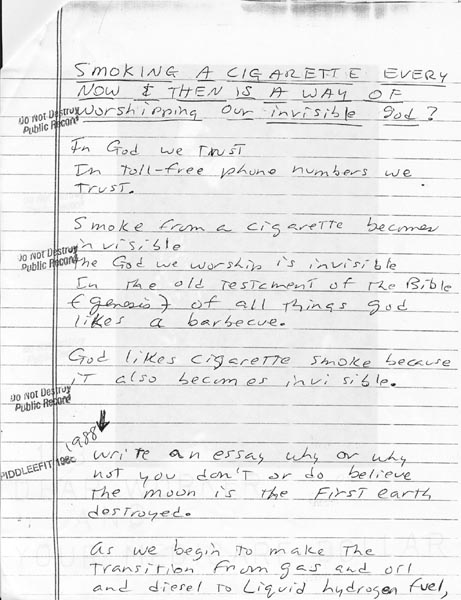 SMOKING A CIGARETTE EVERY
NOW & THEN IS A WAY OF
Do Not Destroy
Public Record
worshipping our invisible god?
In God we TRUST
In toll-free phone numbers we
TRUST.
Smoke from a cigarette becomes
invisible
Do Not Destroy
Public Record
The God we worship is invisible
In the old testament of the Bible
{genesis} of all things god
likes a barbecue.
God likes cigarette smoke because
it also becomes invisible.
Do Not Destroy
Public Record
1988
PIDDLEEFIT 198c
write an essay why or why
not you don't or do believe
the moon is the First earth
destroyed.
As we begin to make the
transition from gas and oil
and diesel to Liquid hydrogen fuel,